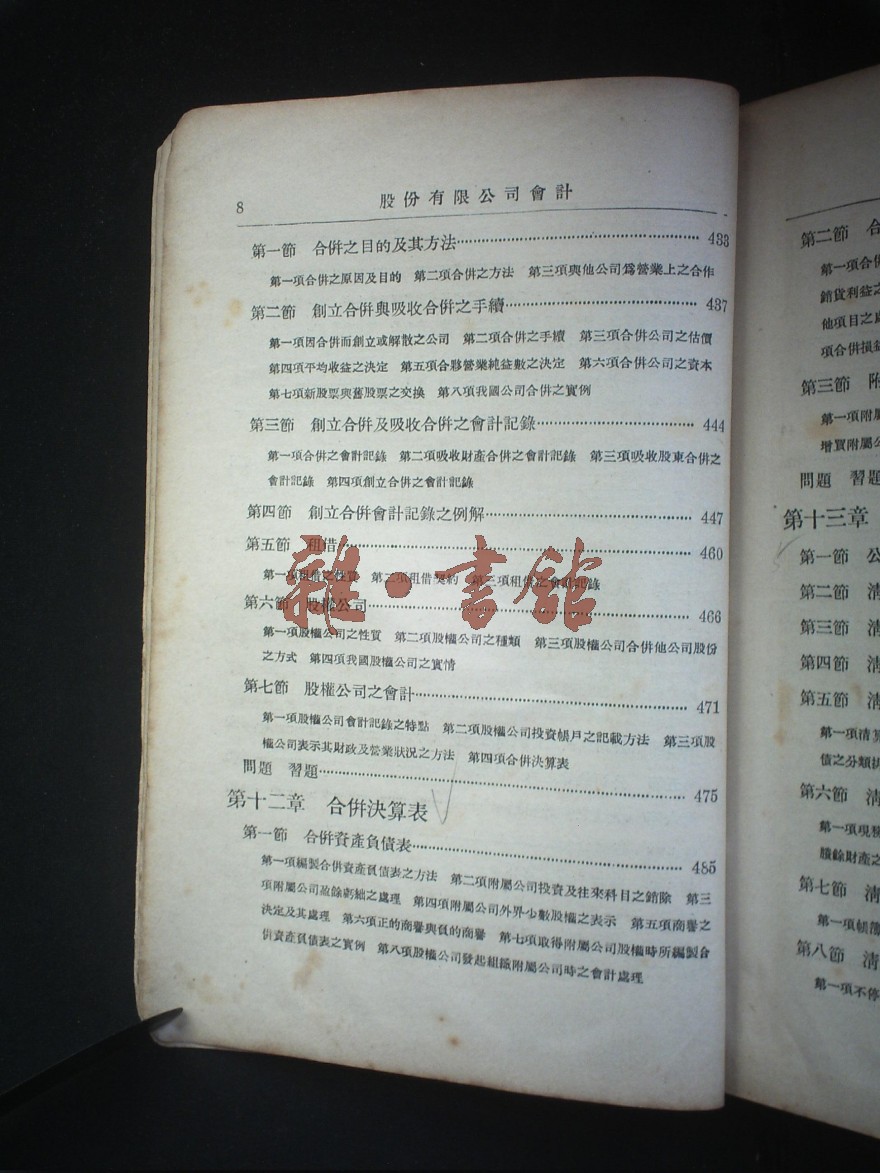 8 股份有限公司會計
第一節 合併之目的及其方法 433
第一項合併之原因及目的 第二項合併之方法 第三項與他公司爲營業上之合作
第二節 創立合併與吸收合併之手續 437
第一項因合併而創立或解散之公司 第二項合併之手續 第三項合併公司之估價
第四項平均收益之決定 第五項合夥營業純益數之決定 第六項合併公司之資本
第七項新股票與舊股票之交換 第八項我國公司合併之實例
第三節 創立合併及吸收合併之會計記錄 444
第一項合併之會計記錄 第二項吸收財產合併之會計記錄 第三項吸收股東合併之
會計記錄 第四項創立合併之會計記錄
第四節 創立合併會計記錄之例解 447
第五節 租借 460
第一項租借之性質 第二項租借契約 第三項租借之會計記錄
第六節 股權公司 466
第一項股權公司之性質 第二項股權公司之種類 第三項股權公司合併他公司股份
之方式 第四項我國股權公司之實情
第七節 股權公司之會計 471
第一項股權公司會計記錄之特點 第二項股權公司投資帳戶之記載方法 第三項股
權公司表示其財政及營業狀況之方法 第四項合併決算表
問題 習題 475
第十二章 合併決算表
第一節 合併資產負債表 485
第一項編製合併資產負債表之方法 第二項附屬公司投資及往來科目之銷除 第三
項附屬公司盈餘虧絀之處理 第四項附屬公司外界少數股權之表示 第五項商譽之
決定及其處理 第六項正的商譽與負的商譽 第七項取得附屬公司股權時所編製合
併資產負債表之實例 第八項股權公司發起組織附屬公司時之會計處理
雜·書館
第二節 合
第一項合併
銷貨利益之
他項目之處
項合併損益
第三節 附
第一項附屬
增買附屬公
問題 習題
第十三章
第一節 公
第二節 清
第三節 清
第四節 清
第五節 清
第一項清算
債之分類
第六節 清
第一項現
賸餘財產之
第七節 清
第一項帳簿
第八節 清
第一項不停